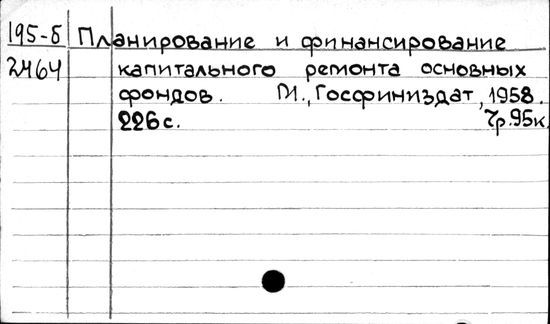 195-б Планирование и финансирование
2464 капитального ремонта основных
фондов. М., Госфиниздат, 1958.
226с. 7р.95к.